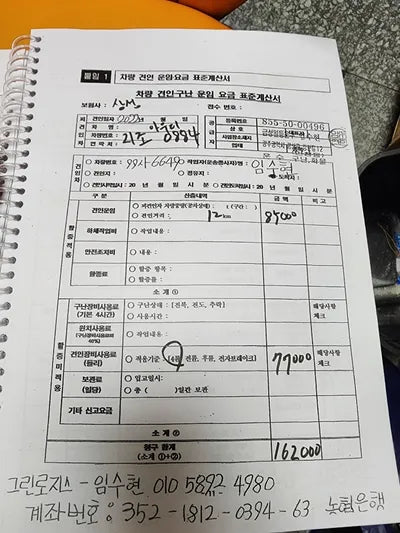 붙임 1 차량 견인 운임·요금 표준계산서
차량 견인·구난 운임 요금 표준계산서
보험사 : 삼성 접수 번호 :
견인일시 : 월 일
차 명 :
차량번호 : 리조 0884
연 락 처 :
등록번호 855-50-00496
상 호
사업장소재지
업태
차량번호 : 99사6649 작업자(운송종사자)명 : 임수현
견인지 : 경유지 : 도착지 :
견인시작일시 : 20 년 월 일 시 분 견인종료일시 : 20 년 월 일 시 분
구 분 산출내역 금 액 비고
할증적용
견인운임 피견인차 차량중량(공차상태) : t (구간 : )
견인거리 : 12 km 85000
하체작업비 작업내용 :
안전조치비 내용 :
할증료 할증 항목 :
할증률 :
소 계 ①
할증미적용
구난장비사용료 (기본 4시간) 구난상태 : [전복, 전도, 추락] 해당사항 체크
사용시간 :
윈치사용료 (구난장비사용료 40%) 작업내용 :
견인장비사용료 (돌리) 적용기준 : [4륜, 전륜, 후륜, 전자브레이크] 77000 해당사항 체크
보관료 (일당) 입고일시 :
총 ( )일간 보관
기타 신고요금
소 계 ②
청구 합계 (소계 ①+②) 162000
그린로지스 - 임수현 010 5892 4980
계좌번호 : 352-1812-0394-63 농협은행